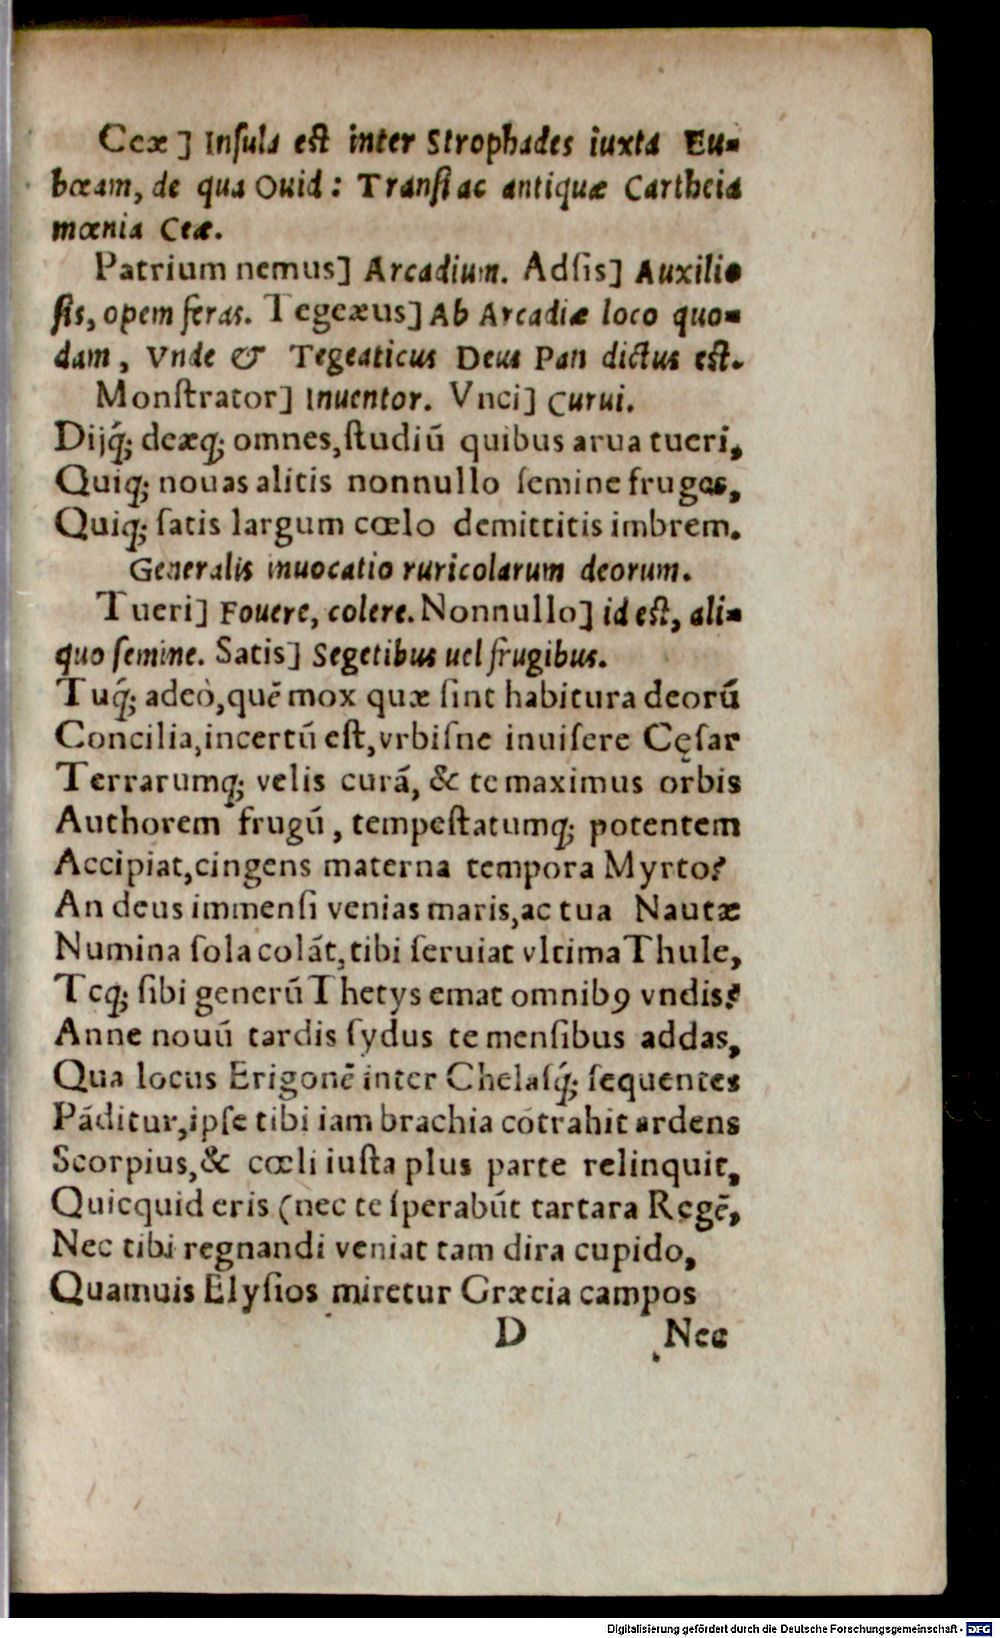 Ceæ ] Inſula est inter Strophades iuxta Eu-
bœam, de qua Ouid: Tranſi ac antiquæ Cartheia
mœnia Ceæ.
Patrium nemus] Arcadium. Adſis] Auxilio
ſis, opem feras. Tegeæus] Ab Arcadiæ loco quo-
dam, Vnde & Tegeaticus Deus Pan dictus est.
Monſtrator] Inuentor. Vnci] Curui.
Dijq́; deæq; omnes, ſtudiū quibus arua tueri,
Quiq; nouas alitis nonnullo ſemine fruges,
Quiq; ſatis largum cœlo demittitis imbrem.
Generalis inuocatio ruricolarum deorum.
Tueri] Fouere, colere. Nonnullo] id est, ali-
quo ſemine. Satis] Segetibus uel frugibus.
Tuq́; adeò, quē mox quæ ſint habitura deorū
Concilia, incertū eſt, vrbiſne inuiſere Cęſar
Terrarumq; velis curā, & te maximus orbis
Authorem frugū, tempeſtatumq; potentem
Accipiat, cingens materna tempora Myrto?
An deus immenſi venias maris, ac tua Nautæ
Numina ſola colāt, tibi ſeruiat vltima Thule,
Teq; ſibi generū Thetys emat omnibꝰ vndis?
Anne nouū tardis ſydus te menſibus addas,
Qua locus Erigonē inter Chelaſq́; ſequentes
Pāditur, ipſe tibi iam brachia cōtrahit ardens
Scorpius, & cœli iuſta plus parte relinquit,
Quicquid eris (nec te ſperabūt tartara Regē,
Nec tibi regnandi veniat tam dira cupido,
Quamuis Elyſios miretur Græcia campos
D Nec
Digitalisierung gefördert durch die Deutsche Forschungsgemeinschaft - DFG